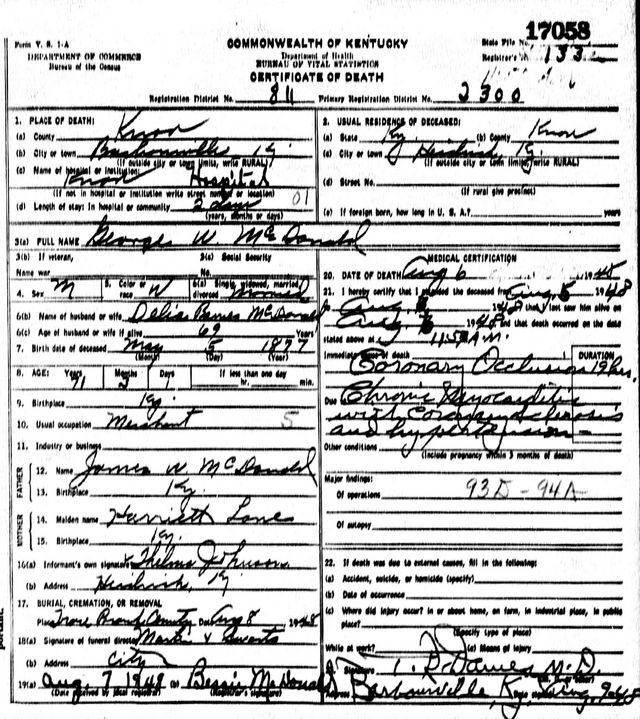 17058
Form V. S. 1-A
DEPARTMENT OF COMMERCE
Bureau of the Census
COMMONWEALTH OF KENTUCKY
Department of Health
BUREAU OF VITAL STATISTICS
CERTIFICATE OF DEATH
State File No.
Registrar's No. 133
Registration District No. 811 Primary Registration District No. 2300
1. PLACE OF DEATH:
(a) County Knox
(b) City or town Barbourville Ky.
(If outside city or town limits, write RURAL)
(c) Name of hospital or institution:
Knox Hospital
(If not in hospital or institution write street number or location)
(d) Length of stay: In hospital or community 2 days 01
(years, months or days)
2. USUAL RESIDENCE OF DECEASED:
(a) State Ky. (b) County Knox
(c) City or town Ky.
(If outside city or town limits write RURAL)
(d) Street No.
(If rural give precinct)
(e) If foreign born, how long in U. S. A.? years
3(a) FULL NAME George W. McDonald
3(b) If veteran,
Name war
3(c) Social Security
No.
4. Sex M
5. Color or
race W
6(a) Single, widowed, married,
divorced Married
6(b) Name of husband or wife Delia McDonald
6(c) Age of husband or wife if alive 69 Years
7. Birth date of deceased May 5 1877
(Month) (Day) (Year)
8. AGE: Years Months Days If less than one day
71 3 1 hr. min.
9. Birthplace Ky.
10. Usual occupation Merchant 5
11. Industry or business
FATHER
12. Name James W. McDonald
13. Birthplace Ky.
MOTHER
14. Maiden name Harriett Jones
15. Birthplace Ky.
16(a) Informant's own signature Thelma Johnson
(b) Address Ky
17. BURIAL, CREMATION, OR REMOVAL
Place County Date Aug 8 1948
18(a) Signature of funeral director Martin &
(b) Address City
19(a) Aug. 7 1948 (b) Bessie McDonald
(Date received by local registrar) (Registrar's signature)
MEDICAL CERTIFICATION
20. DATE OF DEATH Aug 6 1948
21. I hereby certify that I attended the deceased from Aug. 5 1948
to Aug. 1948 that I last saw him alive on
Aug. 1948 and that death occurred on the date
stated above at A.M.
Immediate cause of death DURATION
Coronary Occlusion 12 hrs.
Due to Chronic Myocarditis
with Coronary Sclerosis
and hypertension
Other conditions
(Include pregnancy within 3 months of death)
Major findings:
Of operations 93D - 94A
Of autopsy
22. If death was due to external causes, fill in the following:
(a) Accident, suicide, or homicide (specify)
(b) Date of occurrence
(c) Where did injury occur? In or about home, on farm, in industrial place, in public
place?
(Specify type of place)
While at work? (e) Means of injury
Signature Davies M.D.
Address Barbourville, Ky. Aug. 9-48